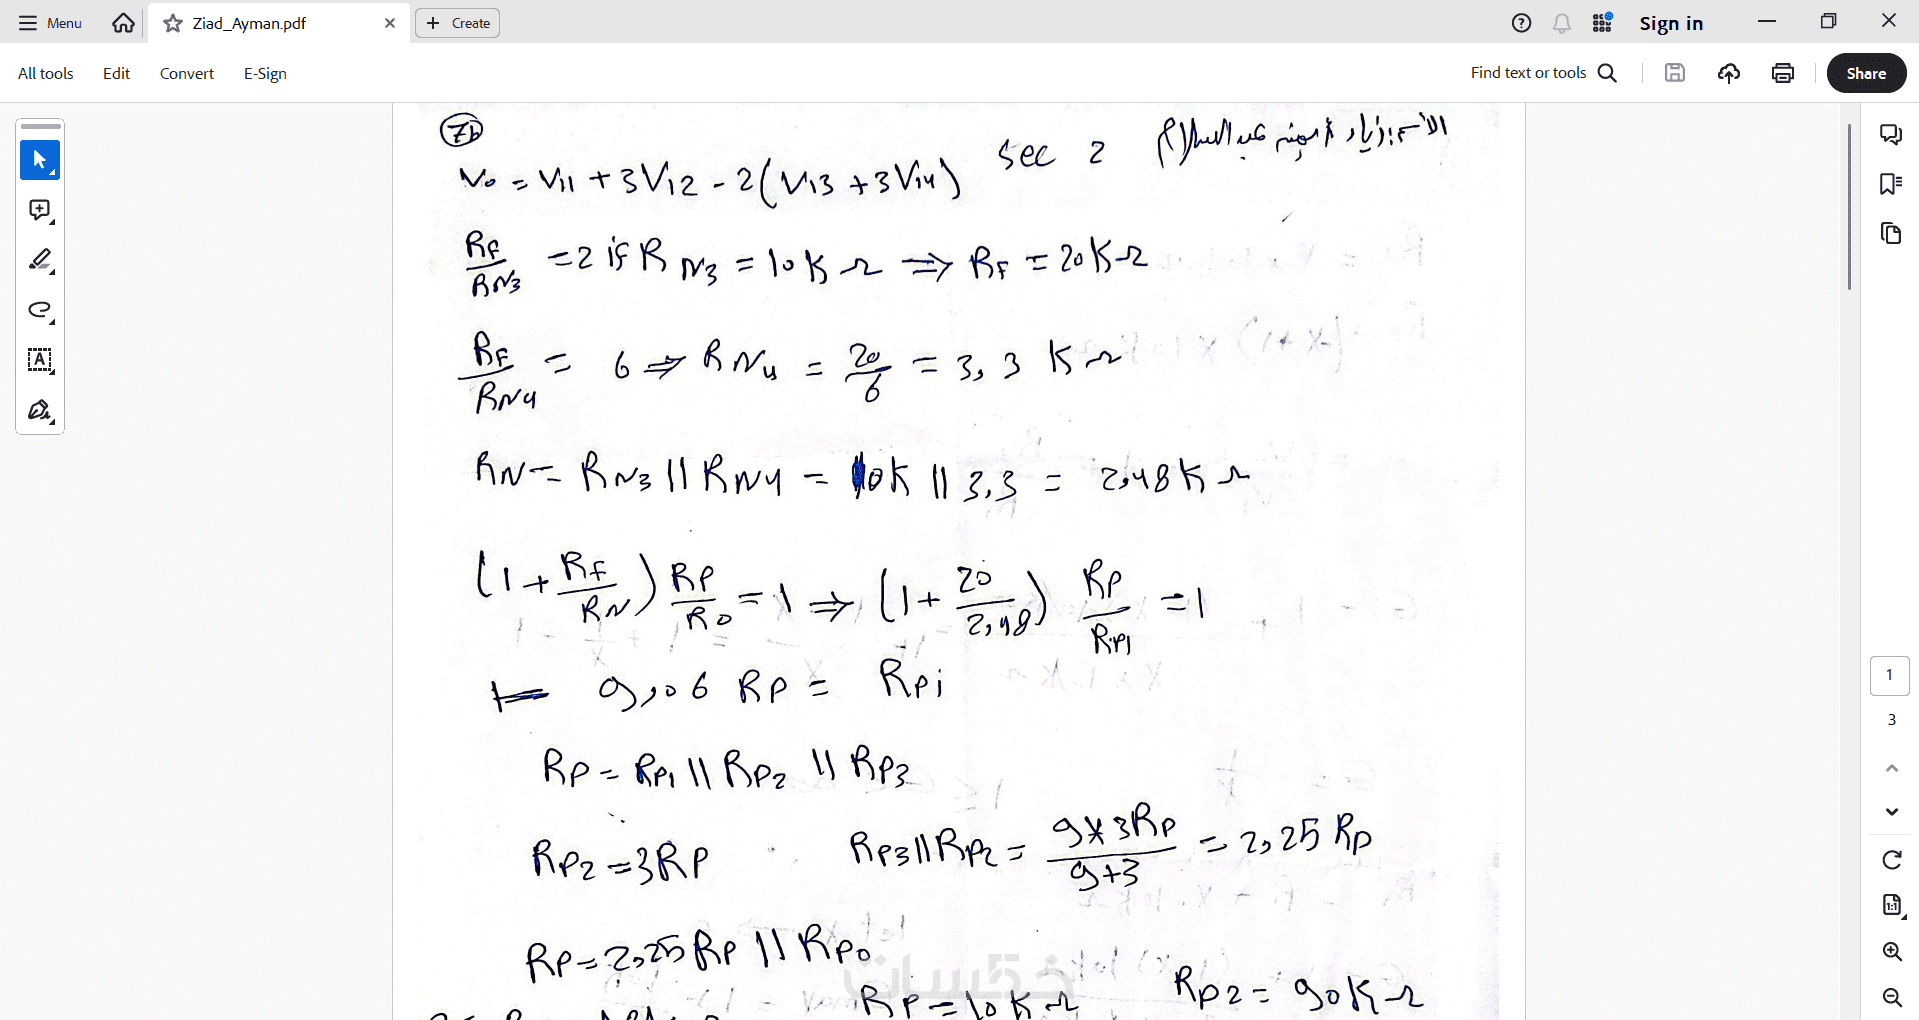 Menu
Ziad_Ayman.pdf
Create
Sign in
All tools
Edit
Convert
E-Sign
Find text or tools
Share
7b
Sec 2
V₀ = Vi1 + 3Vi2 - 2(Vi3 + 3Vi4)
RF/RN3 = 2 if RN3 = 10 KΩ ⇒ RF = 20KΩ
RF/RN4 = 6 ⇒ RN4 = 20/6 = 3,3 KΩ
RN = RN3 || RN4 = 10K || 3,3 = 2,48KΩ
(1 + RF/RN) RP/R0 = 1 ⇒ (1 + 20/2,48) RP/RP1 = 1
9,06 RP = RPi
RP = RP1 || RP2 || RP3
RP2 = 3RP
RP3||RP2 = 9*3RP/9+3 = 2,25 RP
RP = 2,25RP || RP0
RP = 10KΩ
RP2 = 90KΩ
1
3